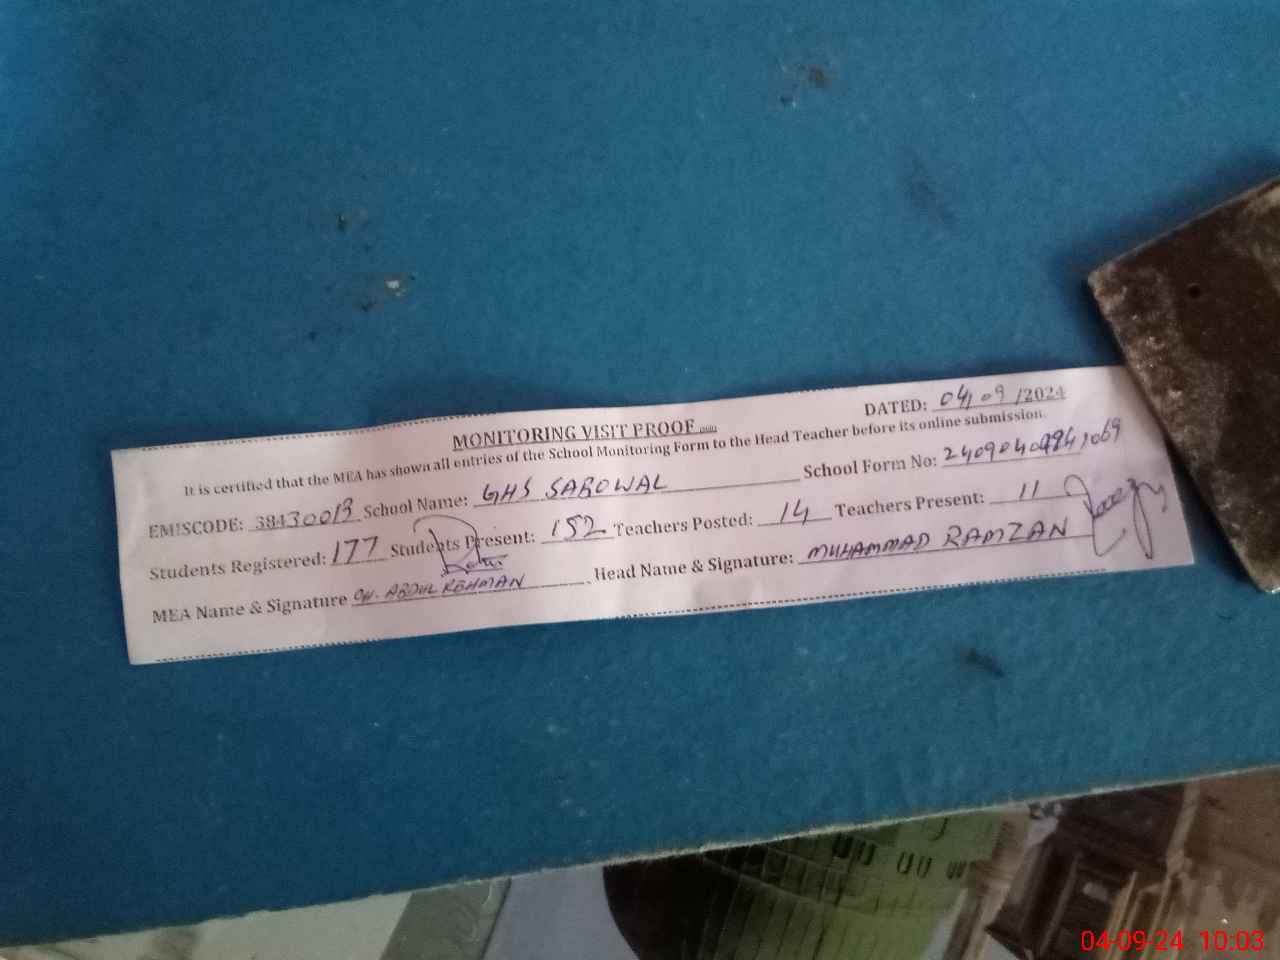 DATED: 04/09/2024
MONITORING VISIT PROOF
It is certified that the MEA has shown all entries of the School Monitoring Form to the Head Teacher before its online submission.
EMISCODE: 38430013 School Name: GHS SAROWAL School Form No:
Students Registered: 177 Students Present: 152 Teachers Posted: 14 Teachers Present: 11
MEA Name & Signature CH. ABDUL REHMAN Head Name & Signature: MUHAMMAD RAMZAN
04-09-24 10:03